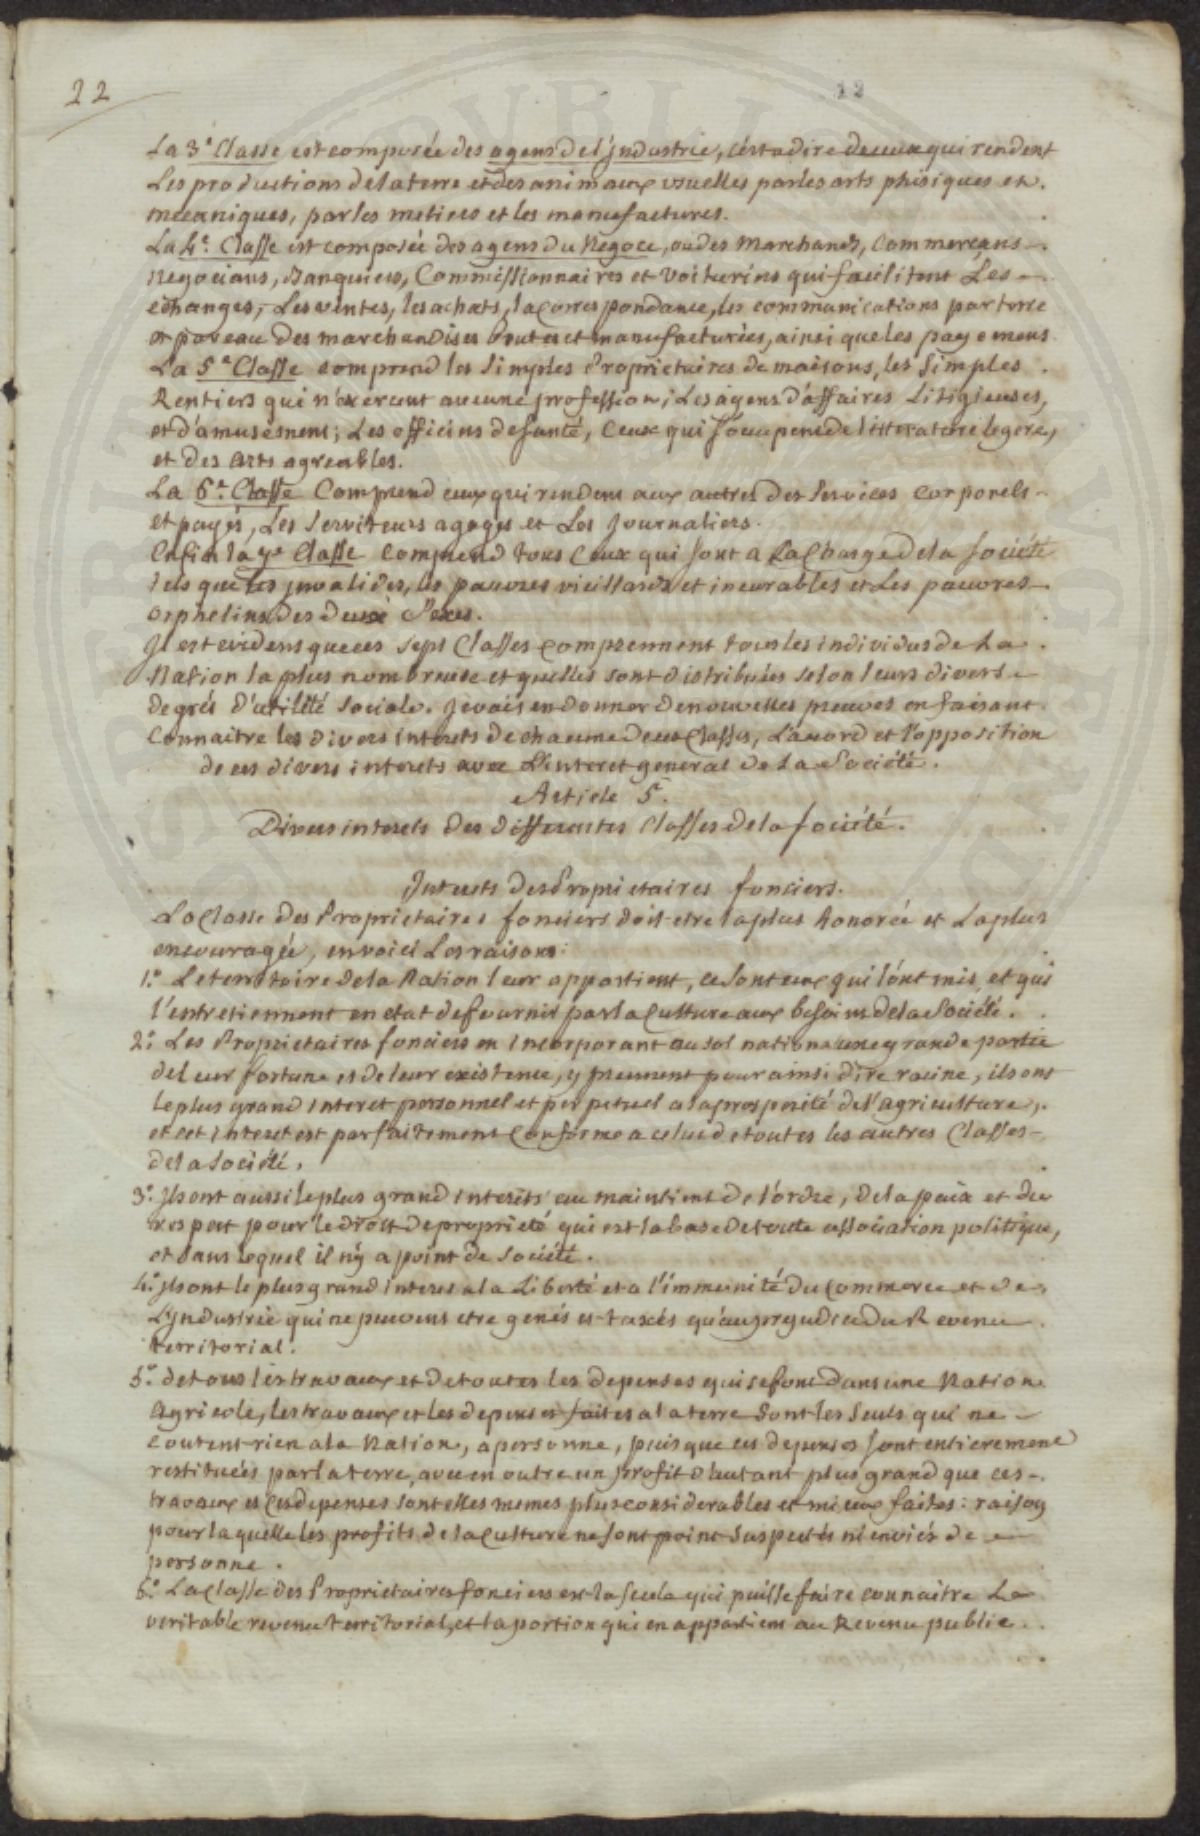 22
22
La 3.e Classe est composée des agens de l'Jndustrie, cést a dire de ceux qui rendent
Les productions de la terre et des animaux usuelles par les arts phisiques et
mecaniques, par les metiers et les manufactures.
La 4.e Classe est composée des agens du Negoce, ou des Marchands, Commerçans
Negocians, Banquiers, Commissionnaires et Voituriers qui facilitent Les
echanges, Les ventes, les achats, la Correspondance, les communications par terre
ou par eau des marchandises brutes et manufacturées, ainsi que les payemens.
La 5.e Classe comprend les simples Proprietaires de maisons, les simples
Rentiers qui n'exercent aucune profession; Les agens d'affaires Litigieuses,
et d'amusement; Les officiers de santé, Ceux qui s'occupent de litterature legere,
et des arts agreables.
La 6.e Classe Comprend ceux qui rendent aux autres des services corporels
et payés, Les serviteurs agages et Les Journaliers.
Enfin la 7.e Classe Comprend tous Ceux qui sont a La Charge de la société
tels que les jnvalides, les pauvres vieillards et incurables et Les pauvres
orphelins des deux Sexes.
Jl est evident que ces sept Classes comprennent tous les individus de La
Nation la plus nombreuse et qu'elles sont distribuées selon leurs divers
degrés d'utilité sociale. Je vais en donner de nouvelles preuves en faisant
Connaitre les divers interets de chacune de ces Classes, L'accord et l'opposition
de ces divers interets avec L'interet general de La Société.
Article 5.
Divers interets des differentes Classes de la société.
Jnterets des Proprietaires fonciers.
La Classe des Proprietaires fonciers doit etre la plus honorée et La plus
encouragée, en voici Les raisons:
1.o Le territoire de la Nation leur appartient, ce sont eux qui l'ont mis, et qui
l'entretiennent en etat de fournir par la Culture aux besoins de la Société.
2.o Les Proprietaires fonciers en incorporant au sol national une grande partie
de leur fortune et de leur existence, y prennent pour ainsi dire racine, ils ont
le plus grand interet personnel et perpetuel a la prosperité de l'agriculture,
et cet interet est parfaitement Conforme a celui de toutes les autres Classes
de la Société.
3.o Jls ont aussi le plus grand interêts au maintient de l'ordre, de la paix et du
respect pour le droit de proprieté qui est la base de toute association politique,
et sans lequel il n'y a point de société.
4.o Jls ont le plus grand interet a la Liberté et a l'immunité du commerce et de
L'Jndustrie qui ne peuvent etre genés et taxés qu'au prejudice du Revenu
territorial.
5.o de tous les travaux et de toutes les depenses qui se font dans une Nation
agricole, les travaux et les depenses faites a la terre sont les seuls qui ne
coutent rien a la Nation, a personne, puisque ces depenses sont entierement
restituées par la terre, avec en outre un profit d'autant plus grand que ces
travaux et ces depenses sont elles memes plus considerables et mieux faites: raison
pour laquelle les profits de la Culture ne sont point suspectés ni enviés de
personne.
6.o La Classe des Proprietaires fonciers est la seule qui puisse faire connaitre Le
veritable revenu territorial, et la portion qui en appartient au Revenu public.